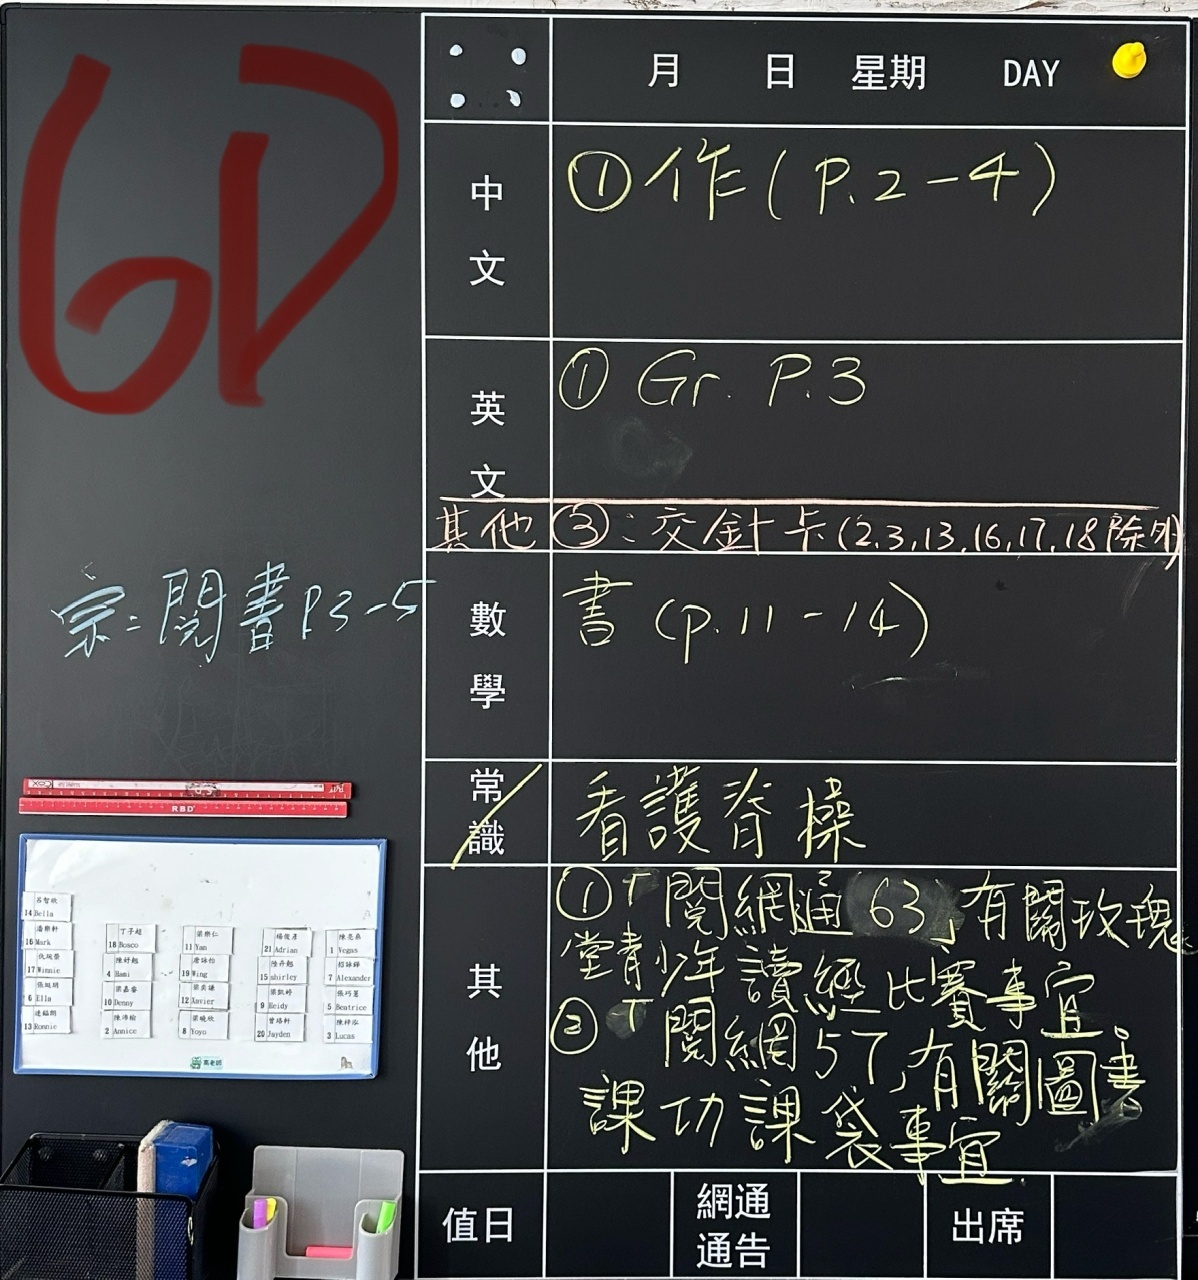 6D
月 日 星期 DAY
中文
①作(P.2-4)
英文
① Gr. P.3
其他 ③:交針卡(2,3,13,16,17,18除外)
宗:閱書P.3-5
數學
書(p.11-14)
常識
看護脊操
其他
①「閱網通63」有關玫瑰
堂青少年讀經比賽事宜。
②「閱網57,有關圖書
課功課袋事宜
RBD
14 Bella
16 Mark
17 Winnie
6 Ella
13 Ronnie
18 Bosco
4 Hami
10 Denny
2 Annice
11 Yan
19 Wing
12 Xavier
8 Yoyo
21 Adrian
15 shirley
9 Heidy
20 Jayden
1 Vegas
7 Alexander
5 Beatrice
3 Lucas
值日
網通通告
出席